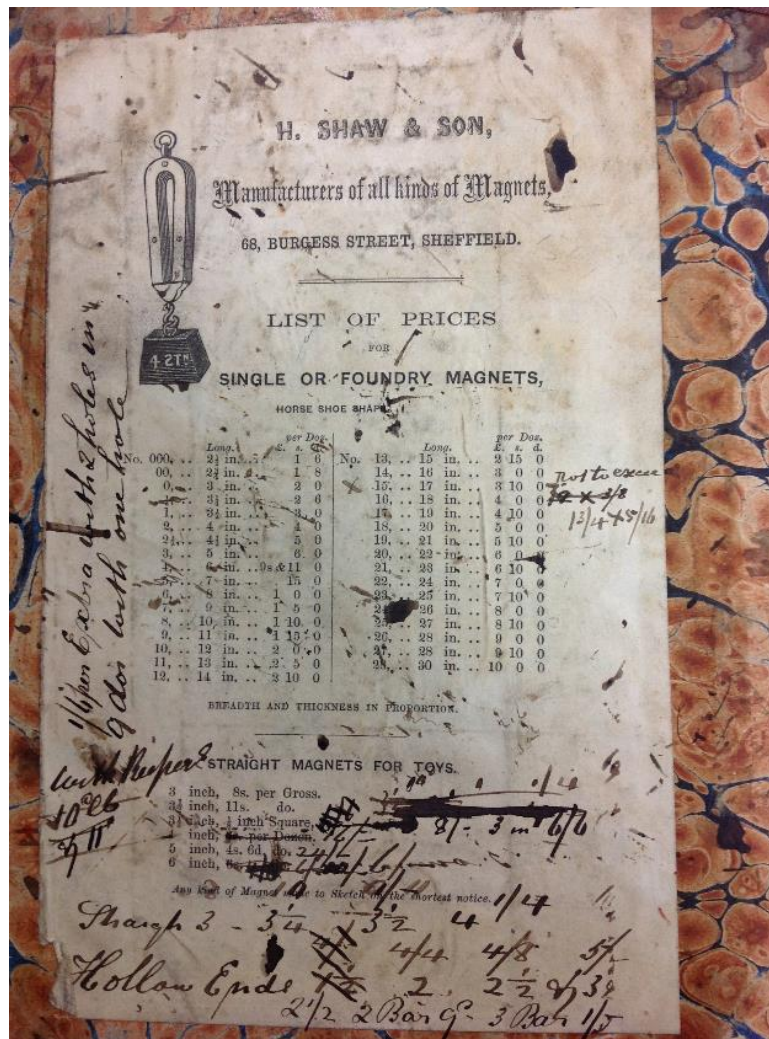 H. SHAW & SON,
Manufacturers of all kinds of Magnets,
68, BURGESS STREET, SHEFFIELD.
4·2TN
LIST OF PRICES
FOR
SINGLE OR FOUNDRY MAGNETS,
HORSE SHOE SHAPE.
Long. per Doz. £. s. d.
No. 000, .. 2½ in. .. 1 6
00, .. 2¾ in. .. 1 8
0, .. 3 in. .. 2 0
3¼ in. .. 2 6
1, .. 3½ in. .. 3 0
2, .. 4 in. .. 4
2½, .. 4½ in. .. 5 0
3, .. 5 in. .. 6 0
4, .. 6 in. .. 9s & 11 0
7 in. .. 15 0
6, .. 8 in. .. 1 0 0
9 in. .. 1 5 0
8, .. 10 in. .. 1 10 0
9, .. 11 in. .. 1 15 0
10, .. 12 in. .. 2 0 0
11, .. 13 in. .. 2 5 0
12, .. 14 in. .. 2 10 0
Long. per Doz. £. s. d.
No. 13, .. 15 in. .. 2 15 0
14, .. 16 in. .. 3 0 0
15, .. 17 in. .. 3 10 0
16, .. 18 in. .. 4 0 0
17, .. 19 in. .. 4 10 0
18, .. 20 in. .. 5 0 0
19, .. 21 in. .. 5 10 0
20, .. 22 in. .. 6 0
21, .. 23 in. .. 6 10
22, .. 24 in. .. 7 0 0
23, .. 25 in. .. 7 10 0
26 in. .. 8 0 0
25, .. 27 in. .. 8 10 0
26, .. 28 in. .. 9 0 0
27, .. 28 in. .. 9 10 0
28, .. 30 in. .. 10 0 0
Not to excee
13/4 × 5/16
BREADTH AND THICKNESS IN PROPORTION.
1/6 per Extra with 2 holes in
9 doz with one hole
with Keepers
STRAIGHT MAGNETS FOR TOYS.
3 inch, 8s. per Gross.
3½ inch, 11s. do.
inch, ¼ inch Square,
inch, per Dozen.
5 inch, 4s. 6d. do.
6 inch,
8/- 3 in 6/6
1/4
Any kind of Magnet made to Sketch on the shortest notice.
1/4
3 - 3¼ 3½ 4
4/4 4/8
Hollow Ends 2 2½
2 1/2 2 Bar 3 Bar 1/5